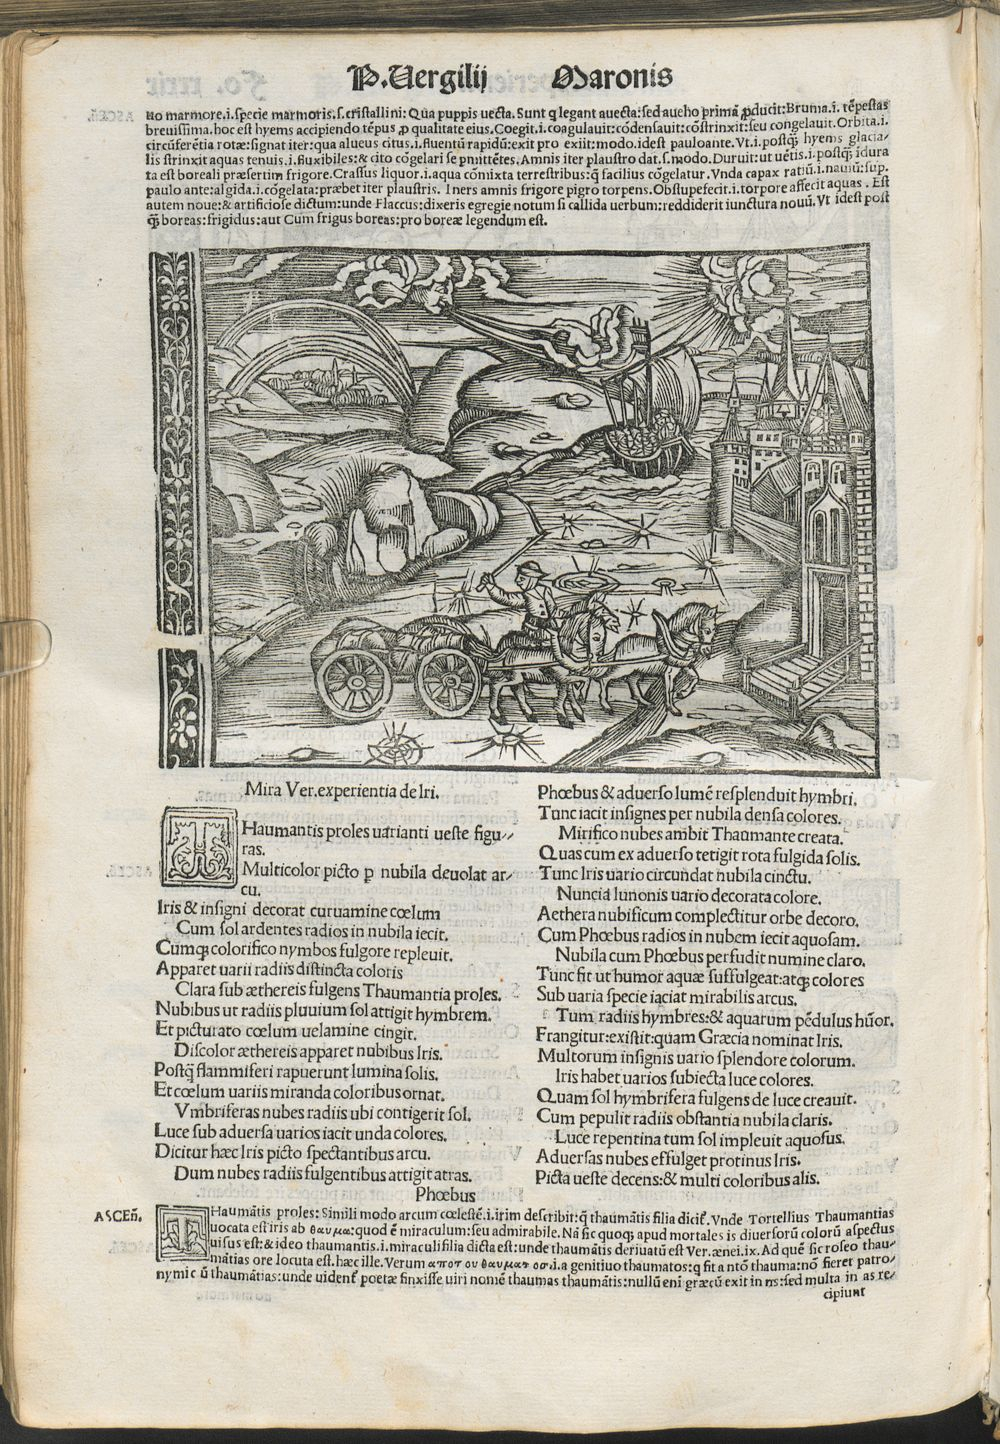 P. Uergilij Maronis
no marmore.i.specie marmoris.s.cristallini: Qua puppis uecta. Sunt q legant auecta: sed aueho primā ꝓducit: Bruma.i. tēpestas
breuissima. hoc est hyems accipiendo tēpus ꝓ qualitate eius. Coegit.i.coagulauit: cōdensauit: cōstrinxit: seu congelauit. Orbita.i.
circūferētia rotæ: signat iter: qua alueus citus.i.fluentū rapidū: exit pro exiit: modo. idest pauloante. Vt.i.postq̄; hyems glacia-
lis strinxit aquas tenuis.i.fluxibiles: & cito cōgelari se pmittētes. Amnis iter plaustro dat.s.modo. Duruit: ut uētis.i.postq̄; idura
ta est boreali præsertim frigore. Crassus liquor.i.aqua cōmixta terrestribus: q̄ facilius cōgelatur. Vnda capax ratiū.i.nauiū: sup.
paulo ante: algida.i.cōgelata: præbet iter plaustris. Iners amnis frigore pigro torpens. Obstupefecit.i.torpore affecit aquas. Est
autem noue: & artificiose dictum: unde Flaccus: dixeris egregie notum si callida uerbum: reddiderit iunctura nouū. Vt idest post
q̄ boreas: frigidus: aut Cum frigus boreas: pro boreæ legendum est.
Mira Ver. experientia de Iri.
THaumantis proles uarianti ueste figu-
ras.
Multicolor picto p nubila deuolat ar-
cu.
Iris & insigni decorat curuamine cœlum
Cum sol ardentes radios in nubila iecit.
Cumq; colorifico nymbos fulgore repleuit.
Apparet uarii radiis distincta coloris
Clara sub æthereis fulgens Thaumantia proles.
Nubibus ut radiis pluuium sol attigit hymbrem.
Et picturato cœlum uelamine cingit.
Discolor æthereis apparet nubibus Iris.
Postq̄ flammiferi rapuerunt lumina solis.
Et cœlum uariis miranda coloribus ornat.
Vmbriferas nubes radiis ubi contigerit sol.
Luce sub aduersa uarios iacit unda colores.
Dicitur hæc Iris picto spectantibus arcu.
Dum nubes radiis fulgentibus attigit atras.
Phœbus
Phœbus & aduerso lumē resplenduit hymbri.
Tunc iacit insignes per nubila densa colores.
Mirifico nubes ambit Thaumante creata.
Quas cum ex aduerso tetigit rota fulgida solis.
Tunc Iris uario circundat nubila cinctu.
Nuncia Iunonis uario decorata colore.
Aethera nubificum complectitur orbe decoro.
Cum Phœbus radios in nubem iecit aquosam.
Nubila cum Phœbus perfudit numine claro.
Tunc fit ut humor aquæ suffulgeat: atq; colores
Sub uaria specie iaciat mirabilis arcus.
Tum radiis hymbres: & aquarum pēdulus hūor.
Frangitur: existit: quam Græcia nominat Iris.
Multorum insignis uario splendore colorum.
Iris habet uarios subiecta luce colores.
Quam sol hymbrifera fulgens de luce creauit.
Cum pepulit radiis obstantia nubila claris.
Luce repentina tum sol impleuit aquosus.
Aduersas nubes effulget protinus Iris.
Picta ueste decens: & multi coloribus alis.
ASCEñ. THaumātis proles: Simili modo arcum cœlestē.i.irim describit: q̄ thaumātis filia dicit̄. Vnde Tortellius Thaumantias
uocata est iris ab θαυμα: quod ē miraculum: seu admirabile. Nā sic quoq; apud mortales is diuersorū colorū aspectus
uisus est: & ideo thaumantis.i.miraculi filia dicta est: unde thaumātis deriuatū est Ver. ænei.ix. Ad quē sic roseo thau-
mātias ore locuta est. hæc ille. Verum αποτ ου θαυματ οσ.i.a genitiuo thaumatos: q̄ fit a ntō thauma: nō fieret patro-
nymic ū thaumātias: unde uident̄ poetæ finxisse uiri nomē thaumas thaumātis: nullū eni græcū exit in ns: sed multa in as re-
cipiunt